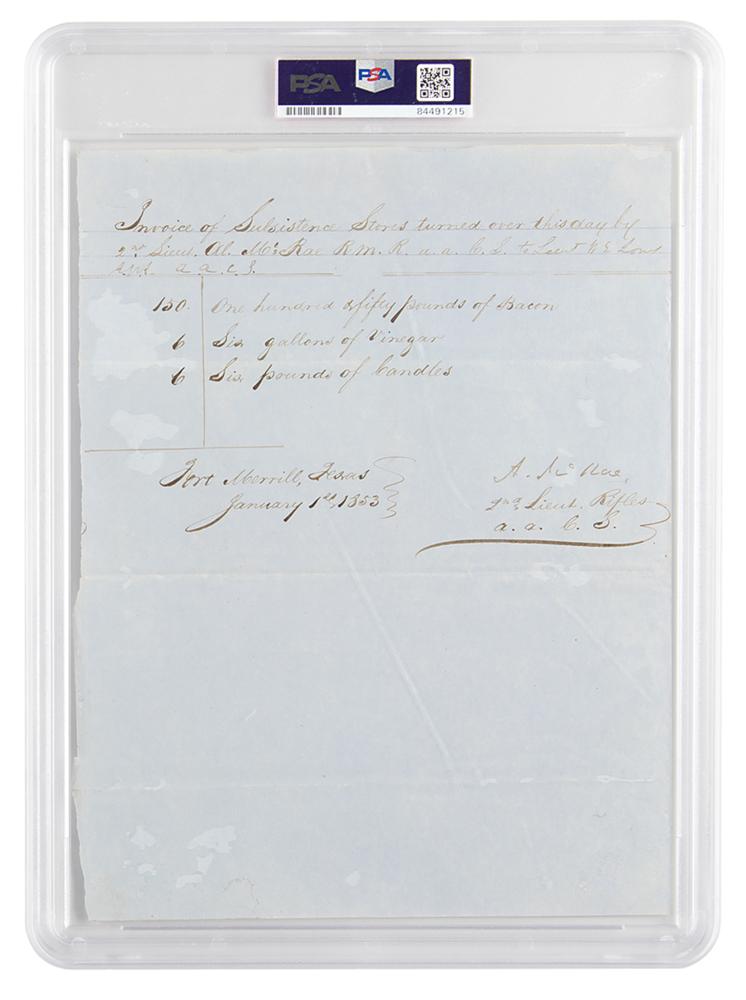 PSA PSA
84491215
Invoice of Subsistence Stores turned over this day by
2nd Lieut. Al. McRae R. M. R. a. a. C. S. to Lieut W E
a a. c. S.
150. One hundred & fifty pounds of Bacon
6 Six gallons of Vinegar
6 Six pounds of Candles
Fort Merrill, Texas
January 1st, 1853
A. McRae,
2nd Lieut. Rifles
a. a. C. S.